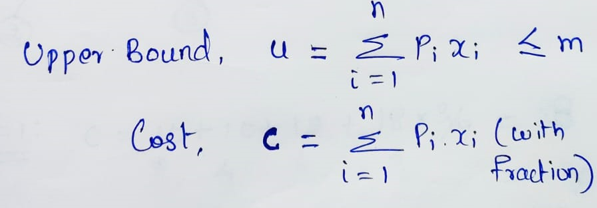 Upper Bound, u = n Σ i=1 Pi xi ≤ m
Cost, c = n Σ i=1 Pi.xi (with
fraction)